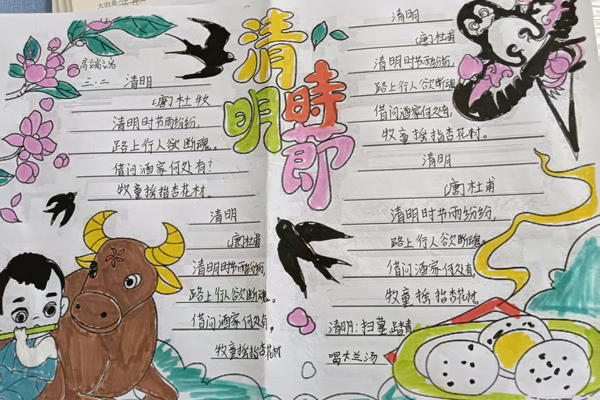 清明時節
三.二 清明
[唐]杜牧
清明时节雨纷纷,
路上行人欲断魂。
借问酒家何处有?
牧童挨指杏花村.
清明
[唐]杜甫
清明时节雨纷纷
路上行人欲断魂。
借问酒家何处有,
牧童挨指杏花村
清明
[唐]杜甫
清明时节雨纷纷
路上行人欲断魂
借问酒家何处有
牧童挨指杏花村.
清明
[唐]杜甫
清明时节雨纷纷,
路上行人欲断魂。
借问酒家何处有
牧童挨指杏花村.
清明:扫墓 踏青
喝木兰汤